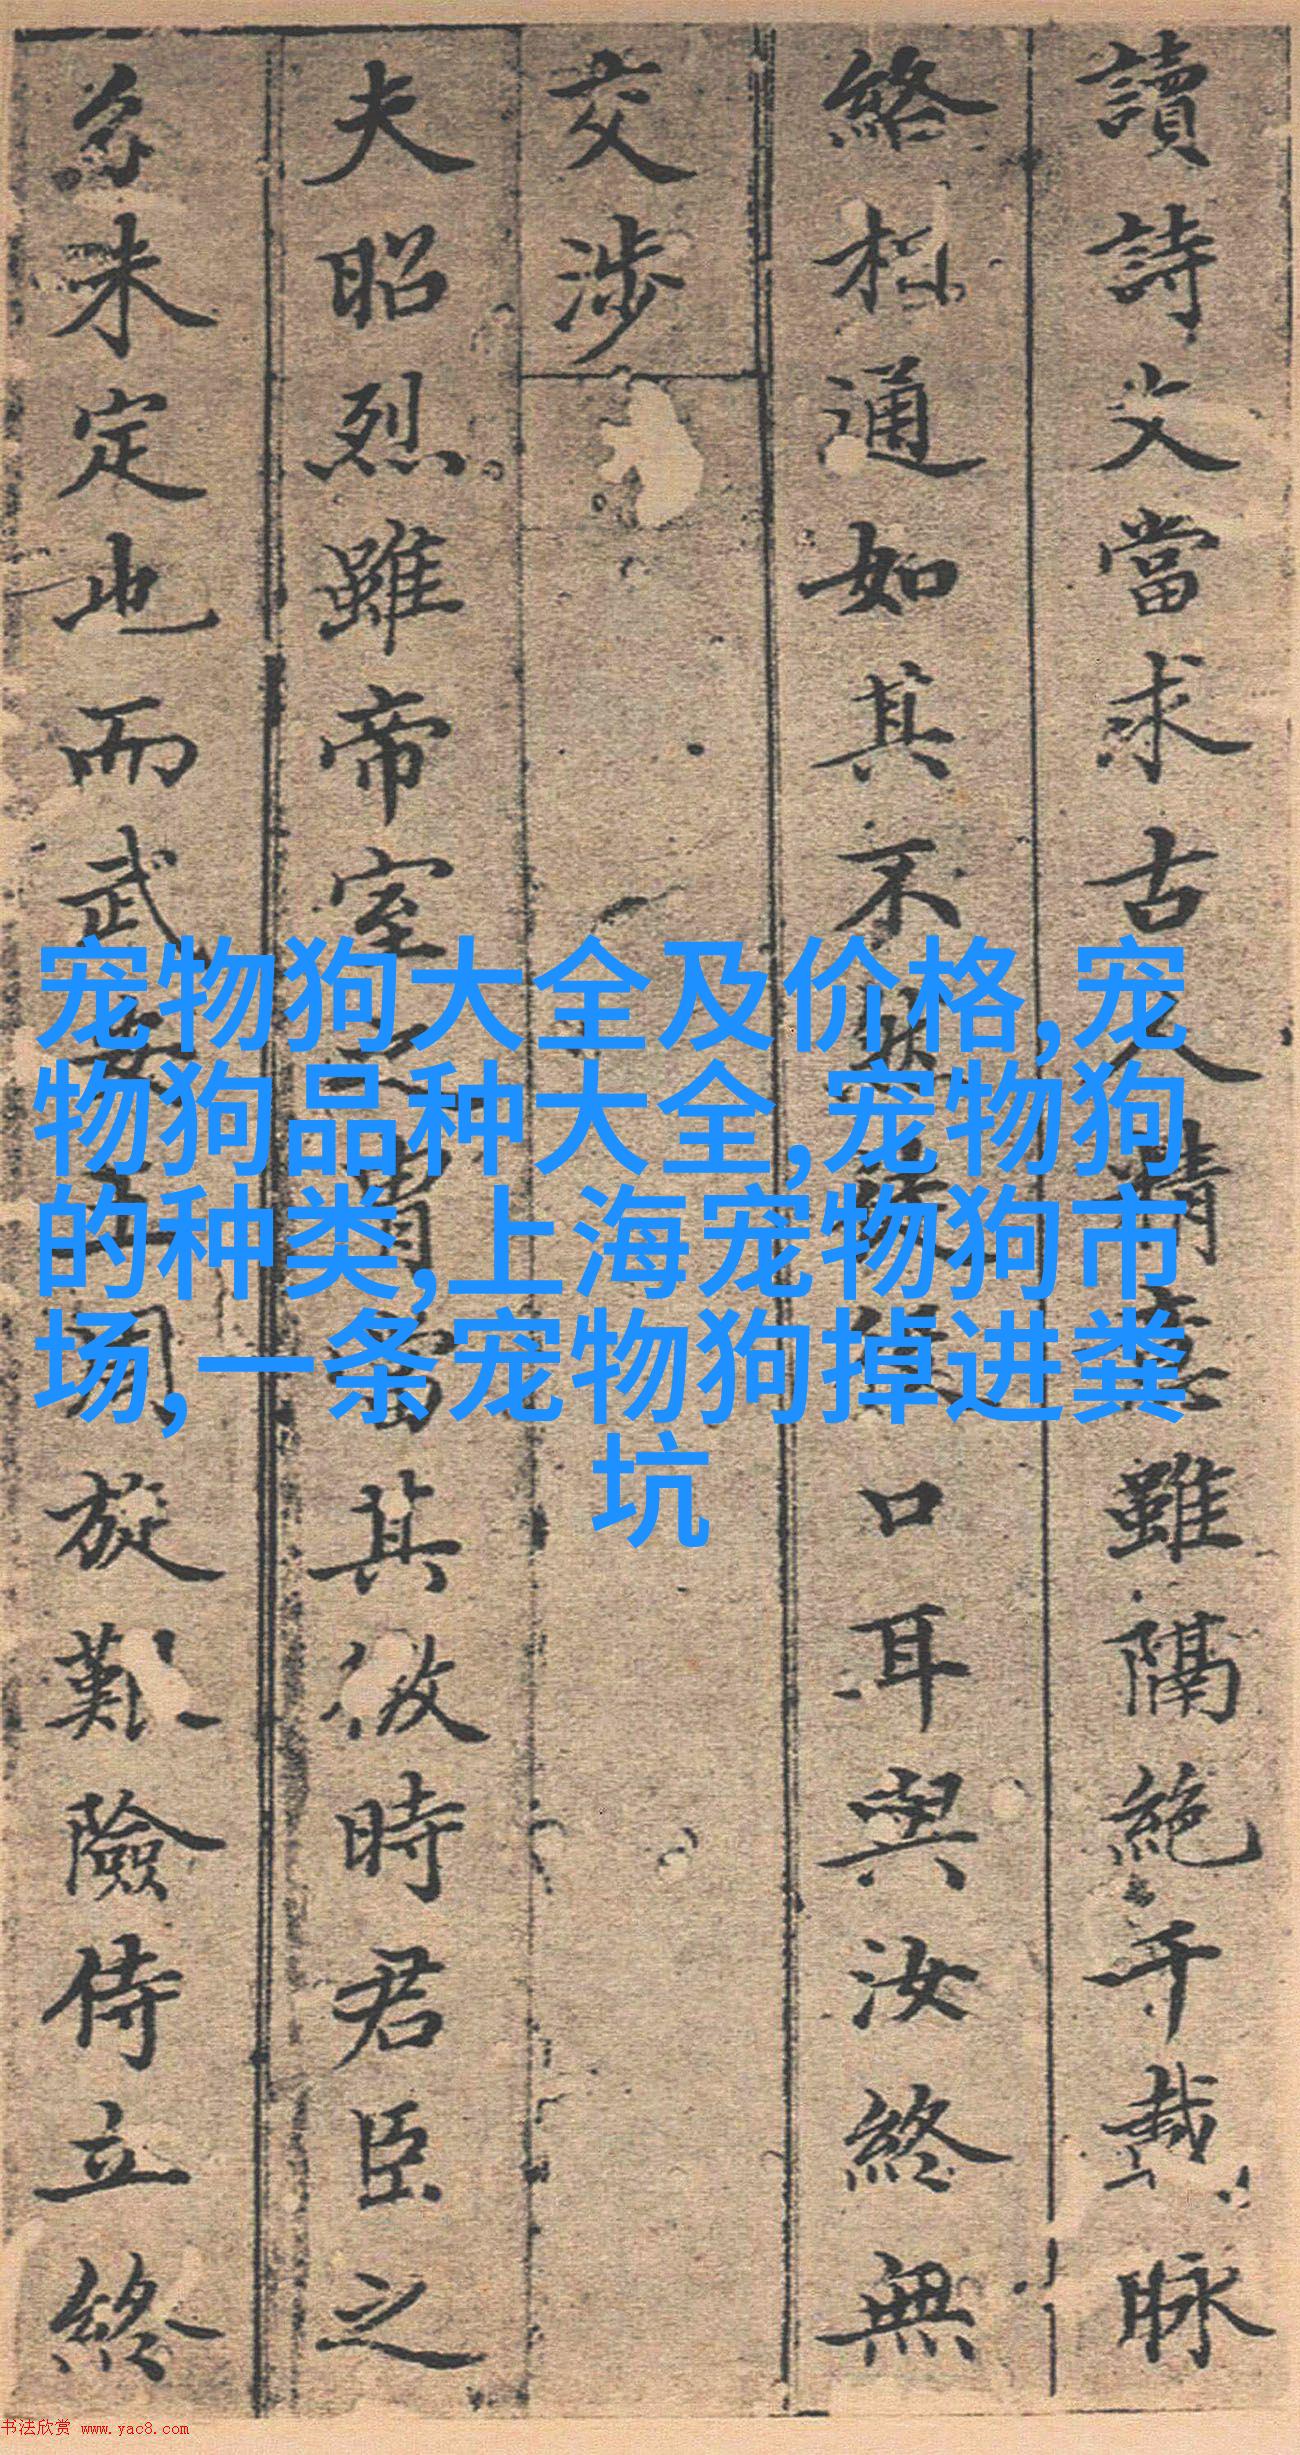 讀詩文當求古人精意雖隔絶千載脉
絡相通如其不然縱役口耳與汝終無
交涉
夫昭烈雖帝室之胄當其微時君臣之
名未定也而武安王周旋艱險侍立終
宠物狗大全及价格,宠
物狗品种大全,宠物狗
的种类,上海宠物狗市
场,一条宠物狗掉进粪
坑
书法欣赏 www.yac8.com